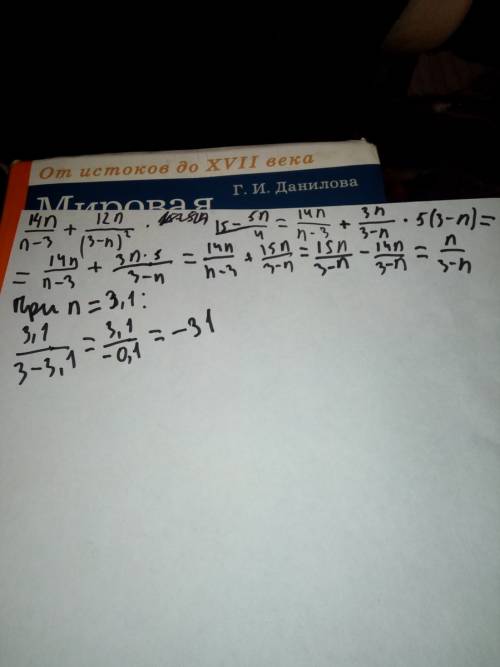 От истоков до XVII века
Г. И. Данилова
Мировая
14n/(n-3) + 12n/(3-n)² · (15-5n)/4 = 14n/(n-3) + 3n/(3-n) · 5(3-n) =
= 14n/(n-3) + 3n·5/(3-n) = 14n/(n-3) + 15n/(3-n) = 15n/(3-n) - 14n/(3-n) = n/(3-n)
При n = 3,1:
3,1/(3-3,1) = 3,1/(-0,1) = -31